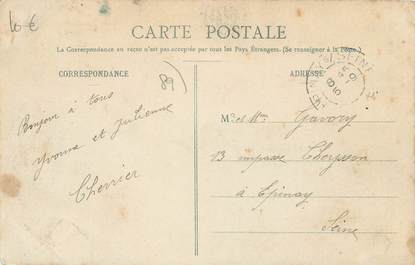 10 €
CARTE POSTALE
La Correspondance au recto n'est pas acceptée par tous les Pays Étrangers. (Se renseigner à la Poste.)
CORRESPONDANCE
ADRESSE
89
Bonjour à tous
Yvonne et Julienne
Cherrier
M. et Mme Gavory
13 impasse
à Epinay
Seine
SEINE